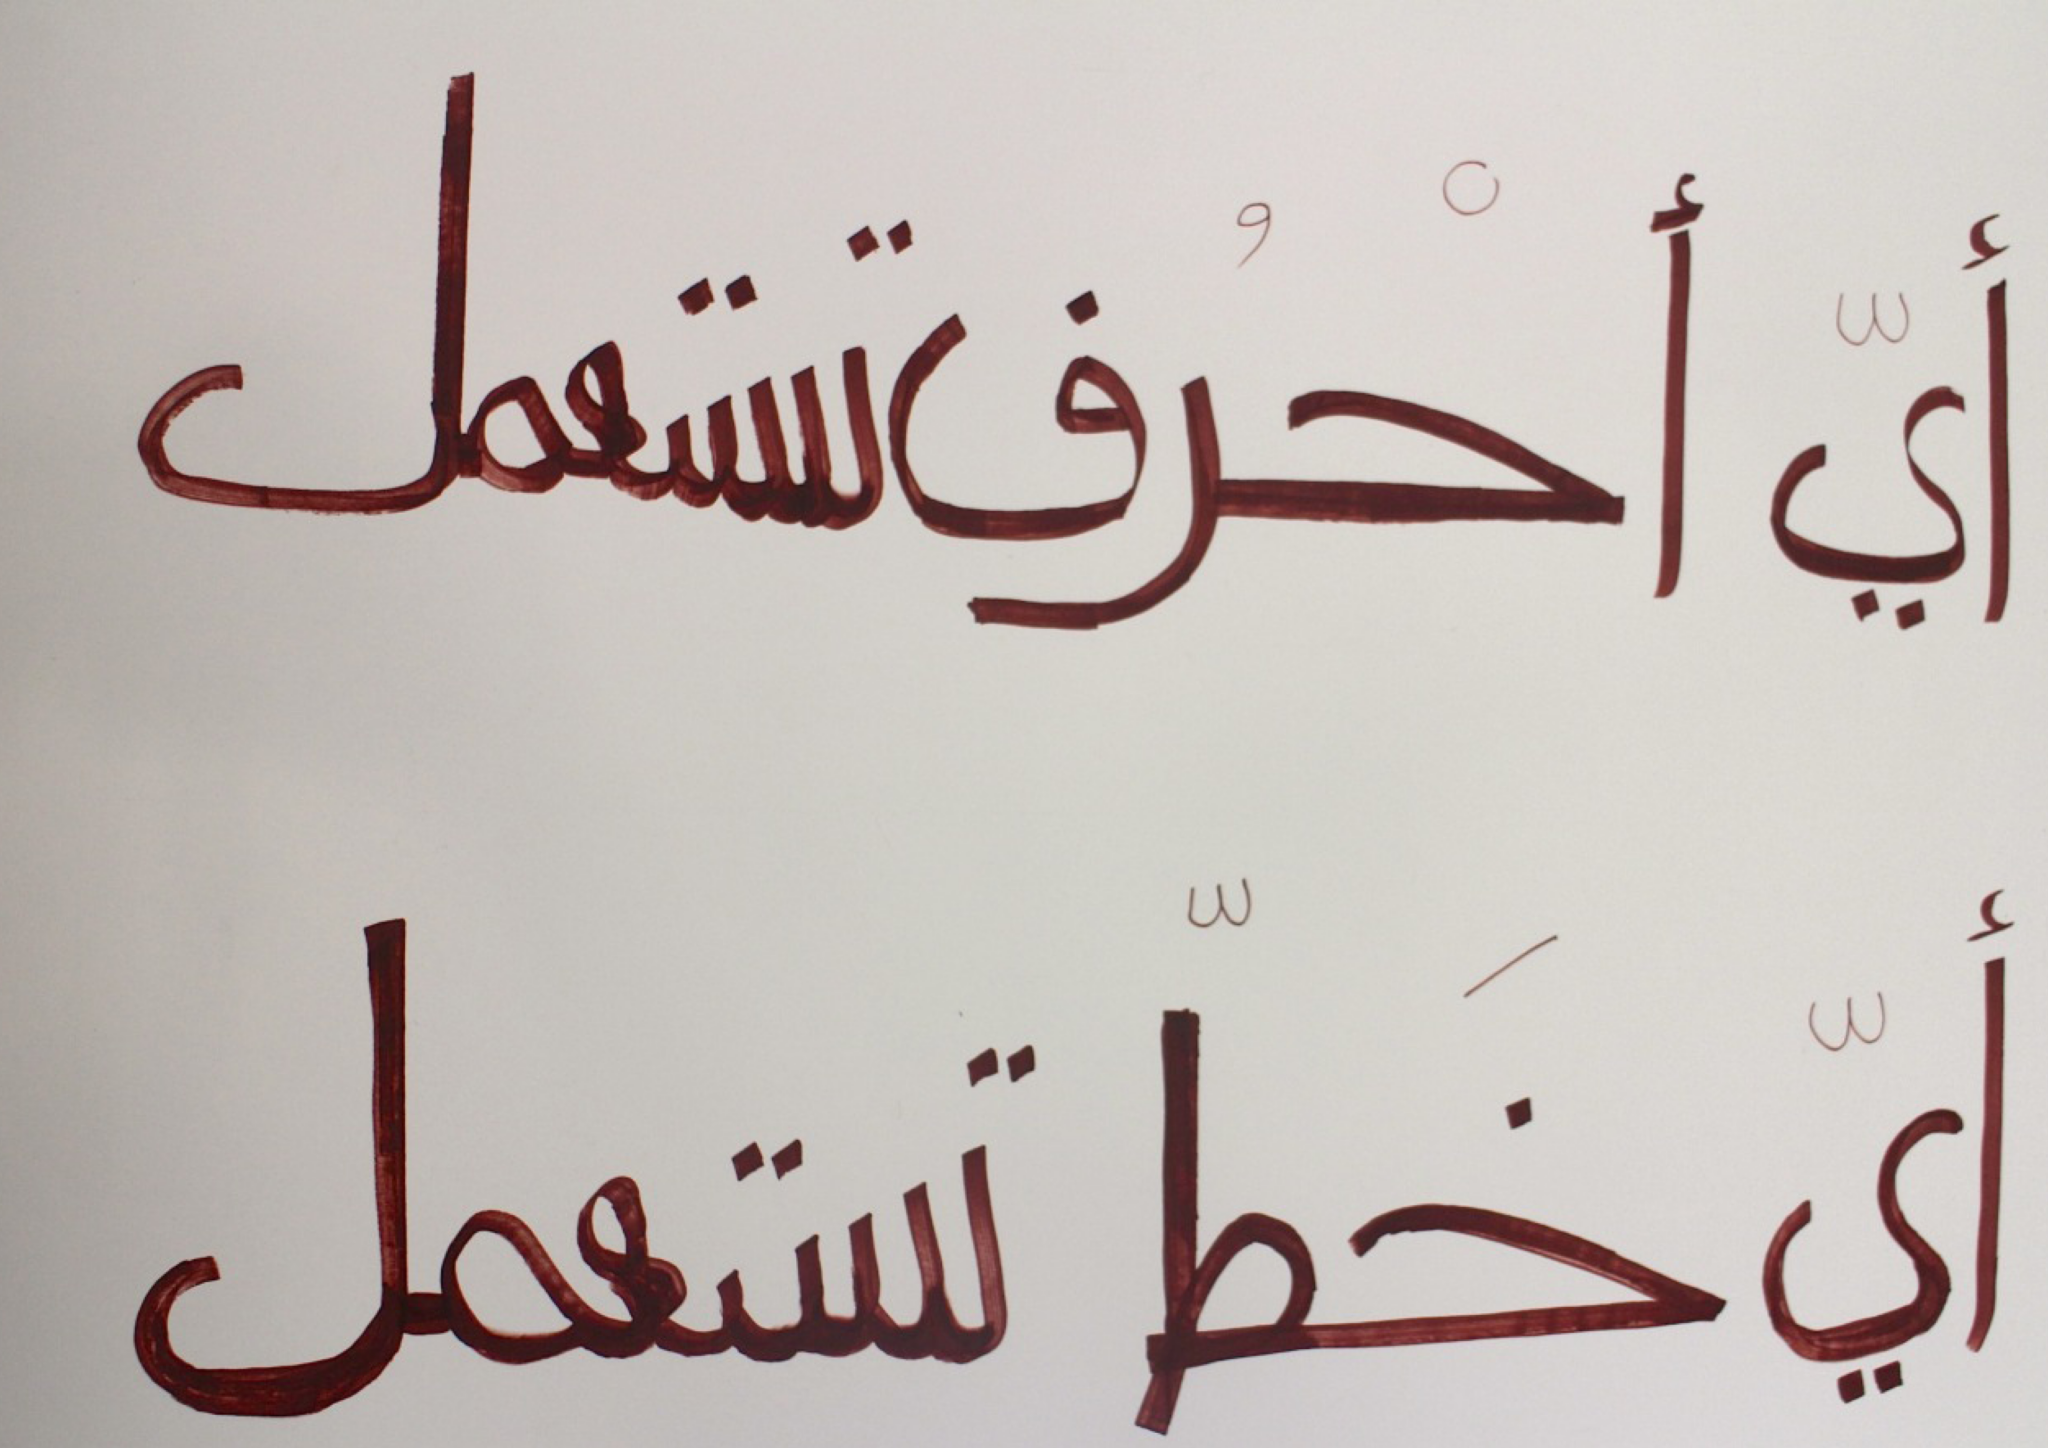 أيّ أحْرُف تستعمل
أيّ خَطّ تستعمل